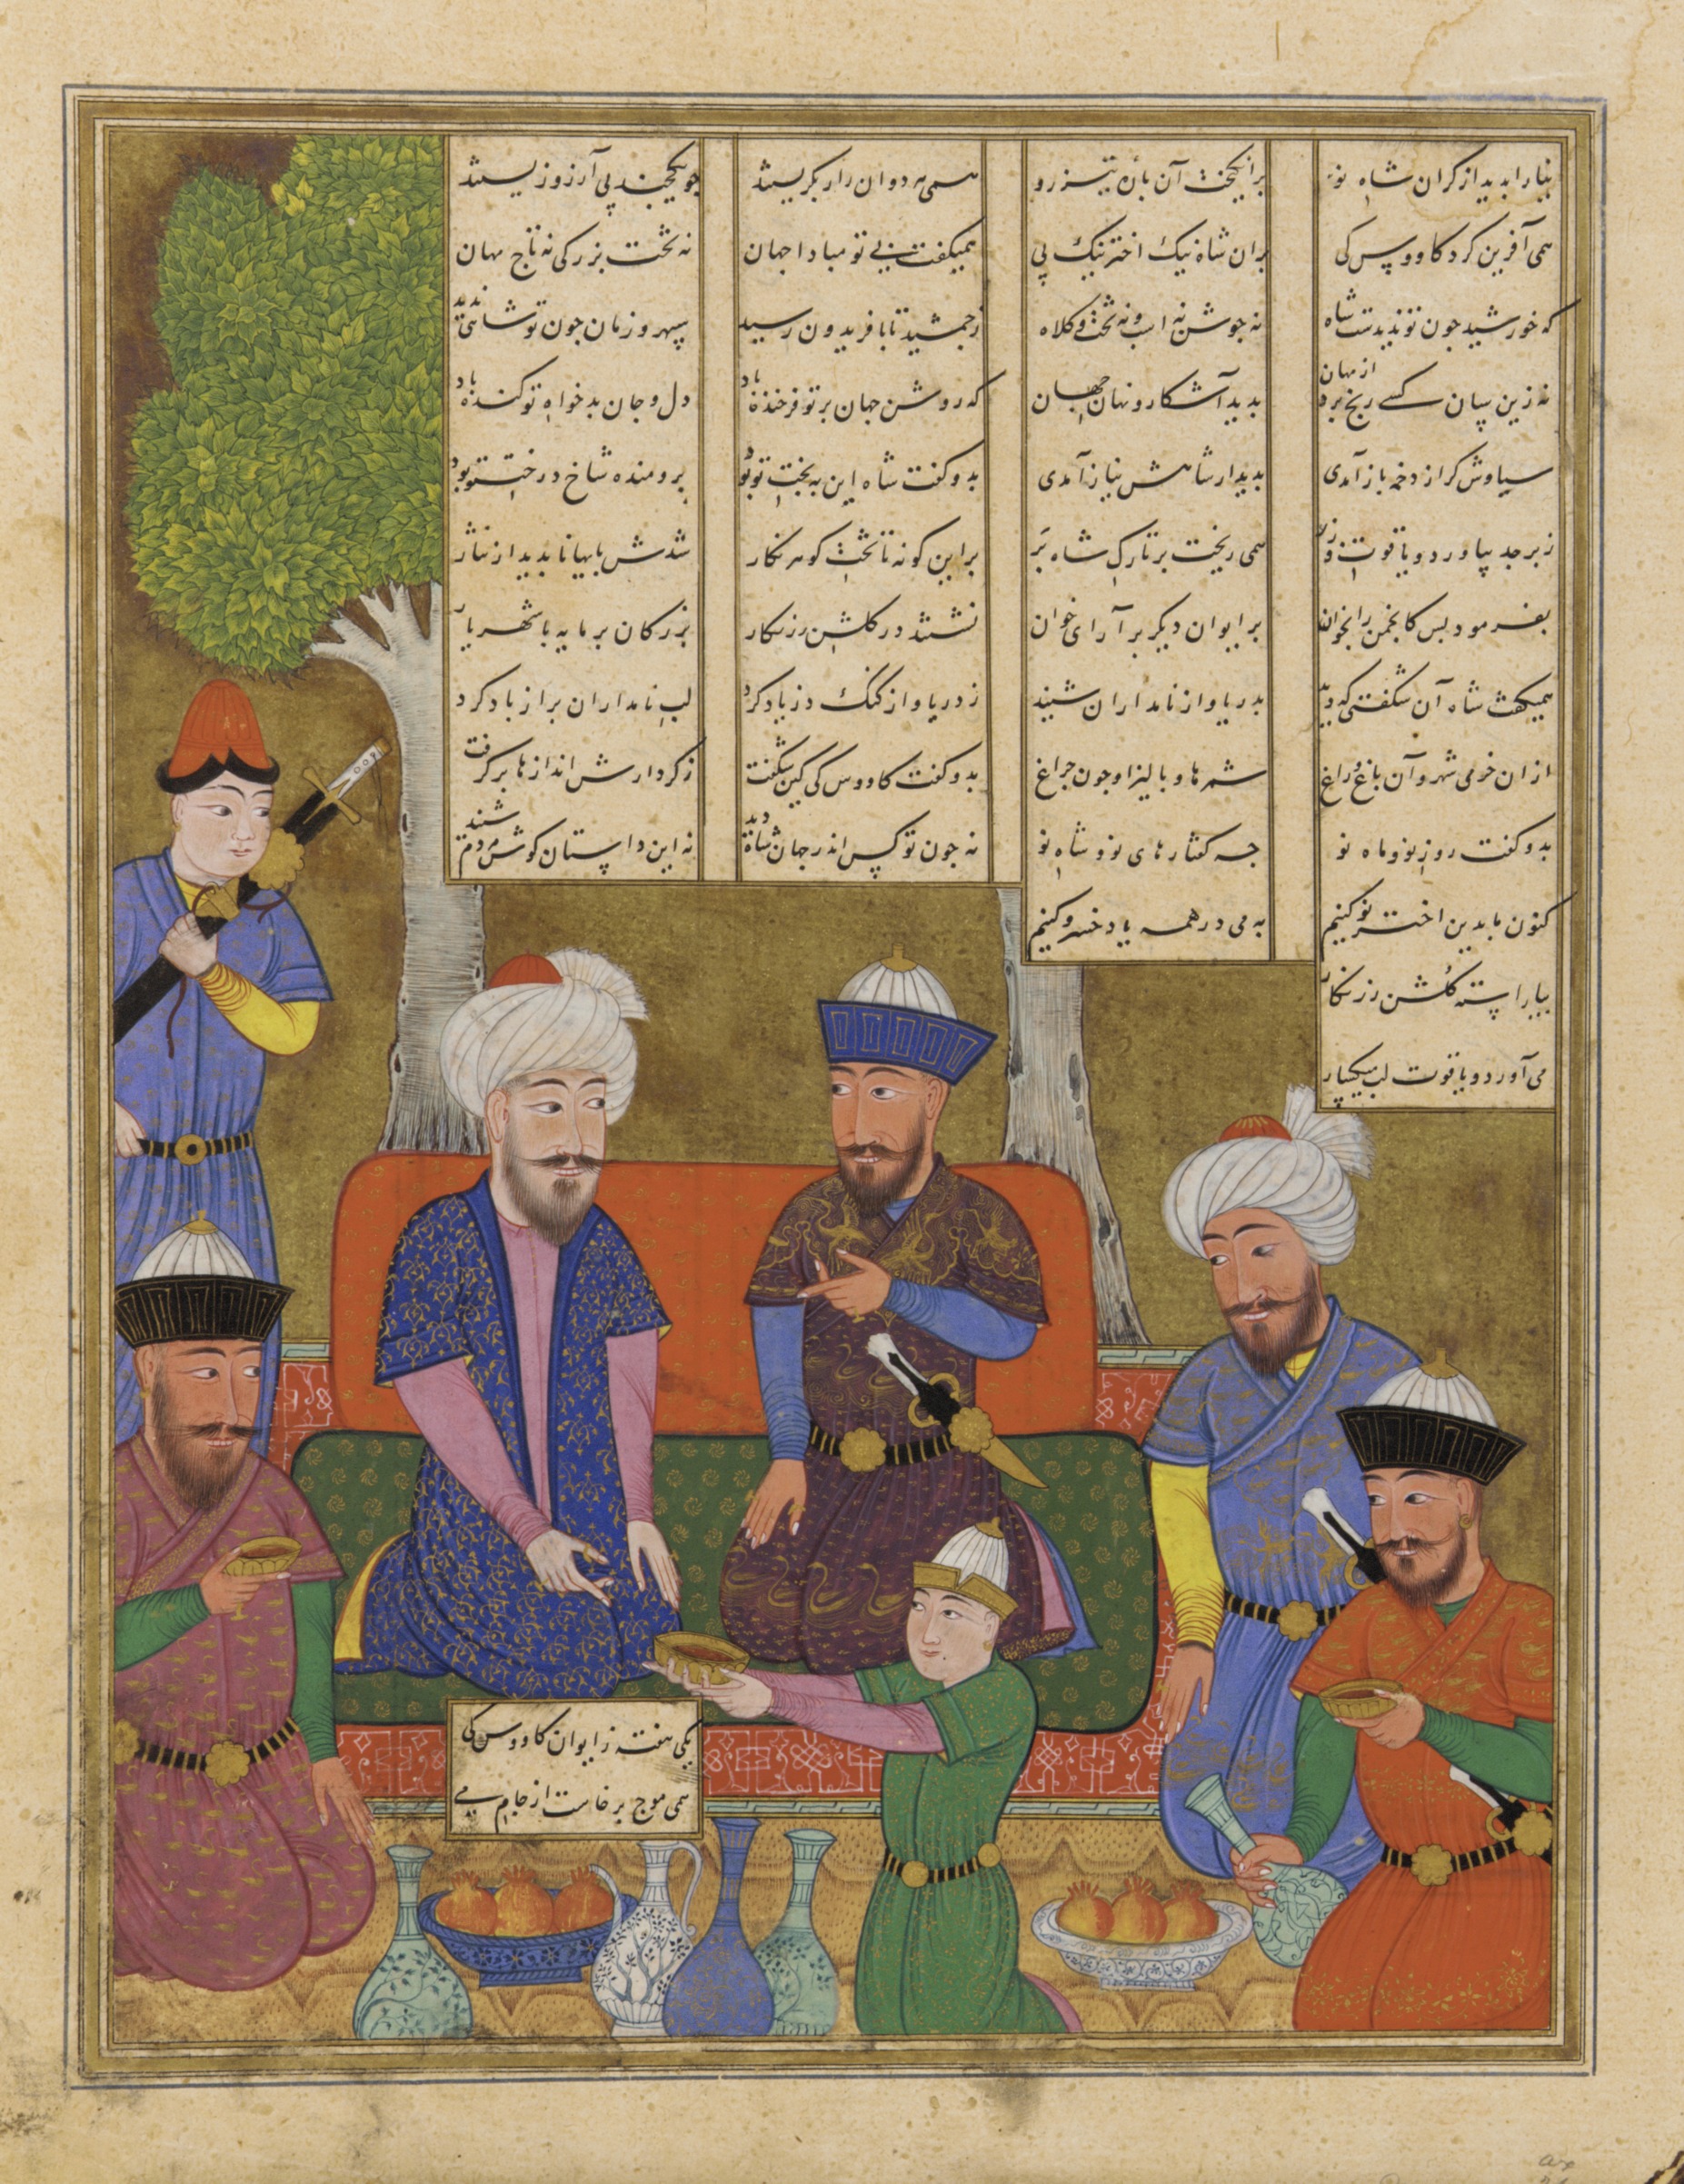 نیا را بدید از کران شاه نو برانگیخت آن باره تیزرو همی هر دوان زار بگریستند چو یکچند بی آرزو زیستند
همی آفرین کرد کاووس کی بران شاه نیک اختر نیک پی همیگفت بی تو مبادا جهان نه تخت بزرگی نه تاج مهان
که خورشید چون تو ندیدست شاه نه جوشن نه اسب و نه تخت و کلاه زجمشید تا بافریدون رسید سپهر و زمان چون تو شاهی ندید
نه زین سان کسی رنج برد از مهان بدید آشکار و نهان جهان که روشن جهان بر تو فرخنده باد دل و جان بدخواه تو کنده باد
سیاوش گر از دخمه باز آمدی بدیدار شاهش نیاز آمدی بدو گفت شاه این به بخت تو بود برومنده شاخ درخت تو بود
زبرجد بیاورد و یاقوت و زر همی ریخت بر تارک شاه بر براین گونه تا تخت گوهر نگار شدش پایها ناپدید از نثار
بفرمود پس کانجمن را بخوان بر ایوان دیگر برآرای خوان نشستند در گلشن زرنگار بزرگان پرمایه با شهریار
همیگفت شاه آن شگفتی که دید بدریا و از نامداران شنید ز دریا و از گنگ دز یاد کرد لب نامداران پر از باد کرد
از ان خرمی شهر و آن باغ و راغ شمرها و پالیزاو چون چراغ بدو گفت کاووس کی کین شگفت ز کردارش اندازها برگرفت
بدو گفت روز نو و ماه نو چه گفتارهای نو و شاه نو نه چون تو کس اندر جهان شاه دید نه این داستان گوش مردم شنید
کنون ما بدین اختر نو کنیم به می در همه یاد خسرو کنیم
بیاراسته گلشن زرنگار
می آورد و یاقوت لب میگسار
یکی هفته ز ایوان کاووس کی
همی موج برخاست از جام می